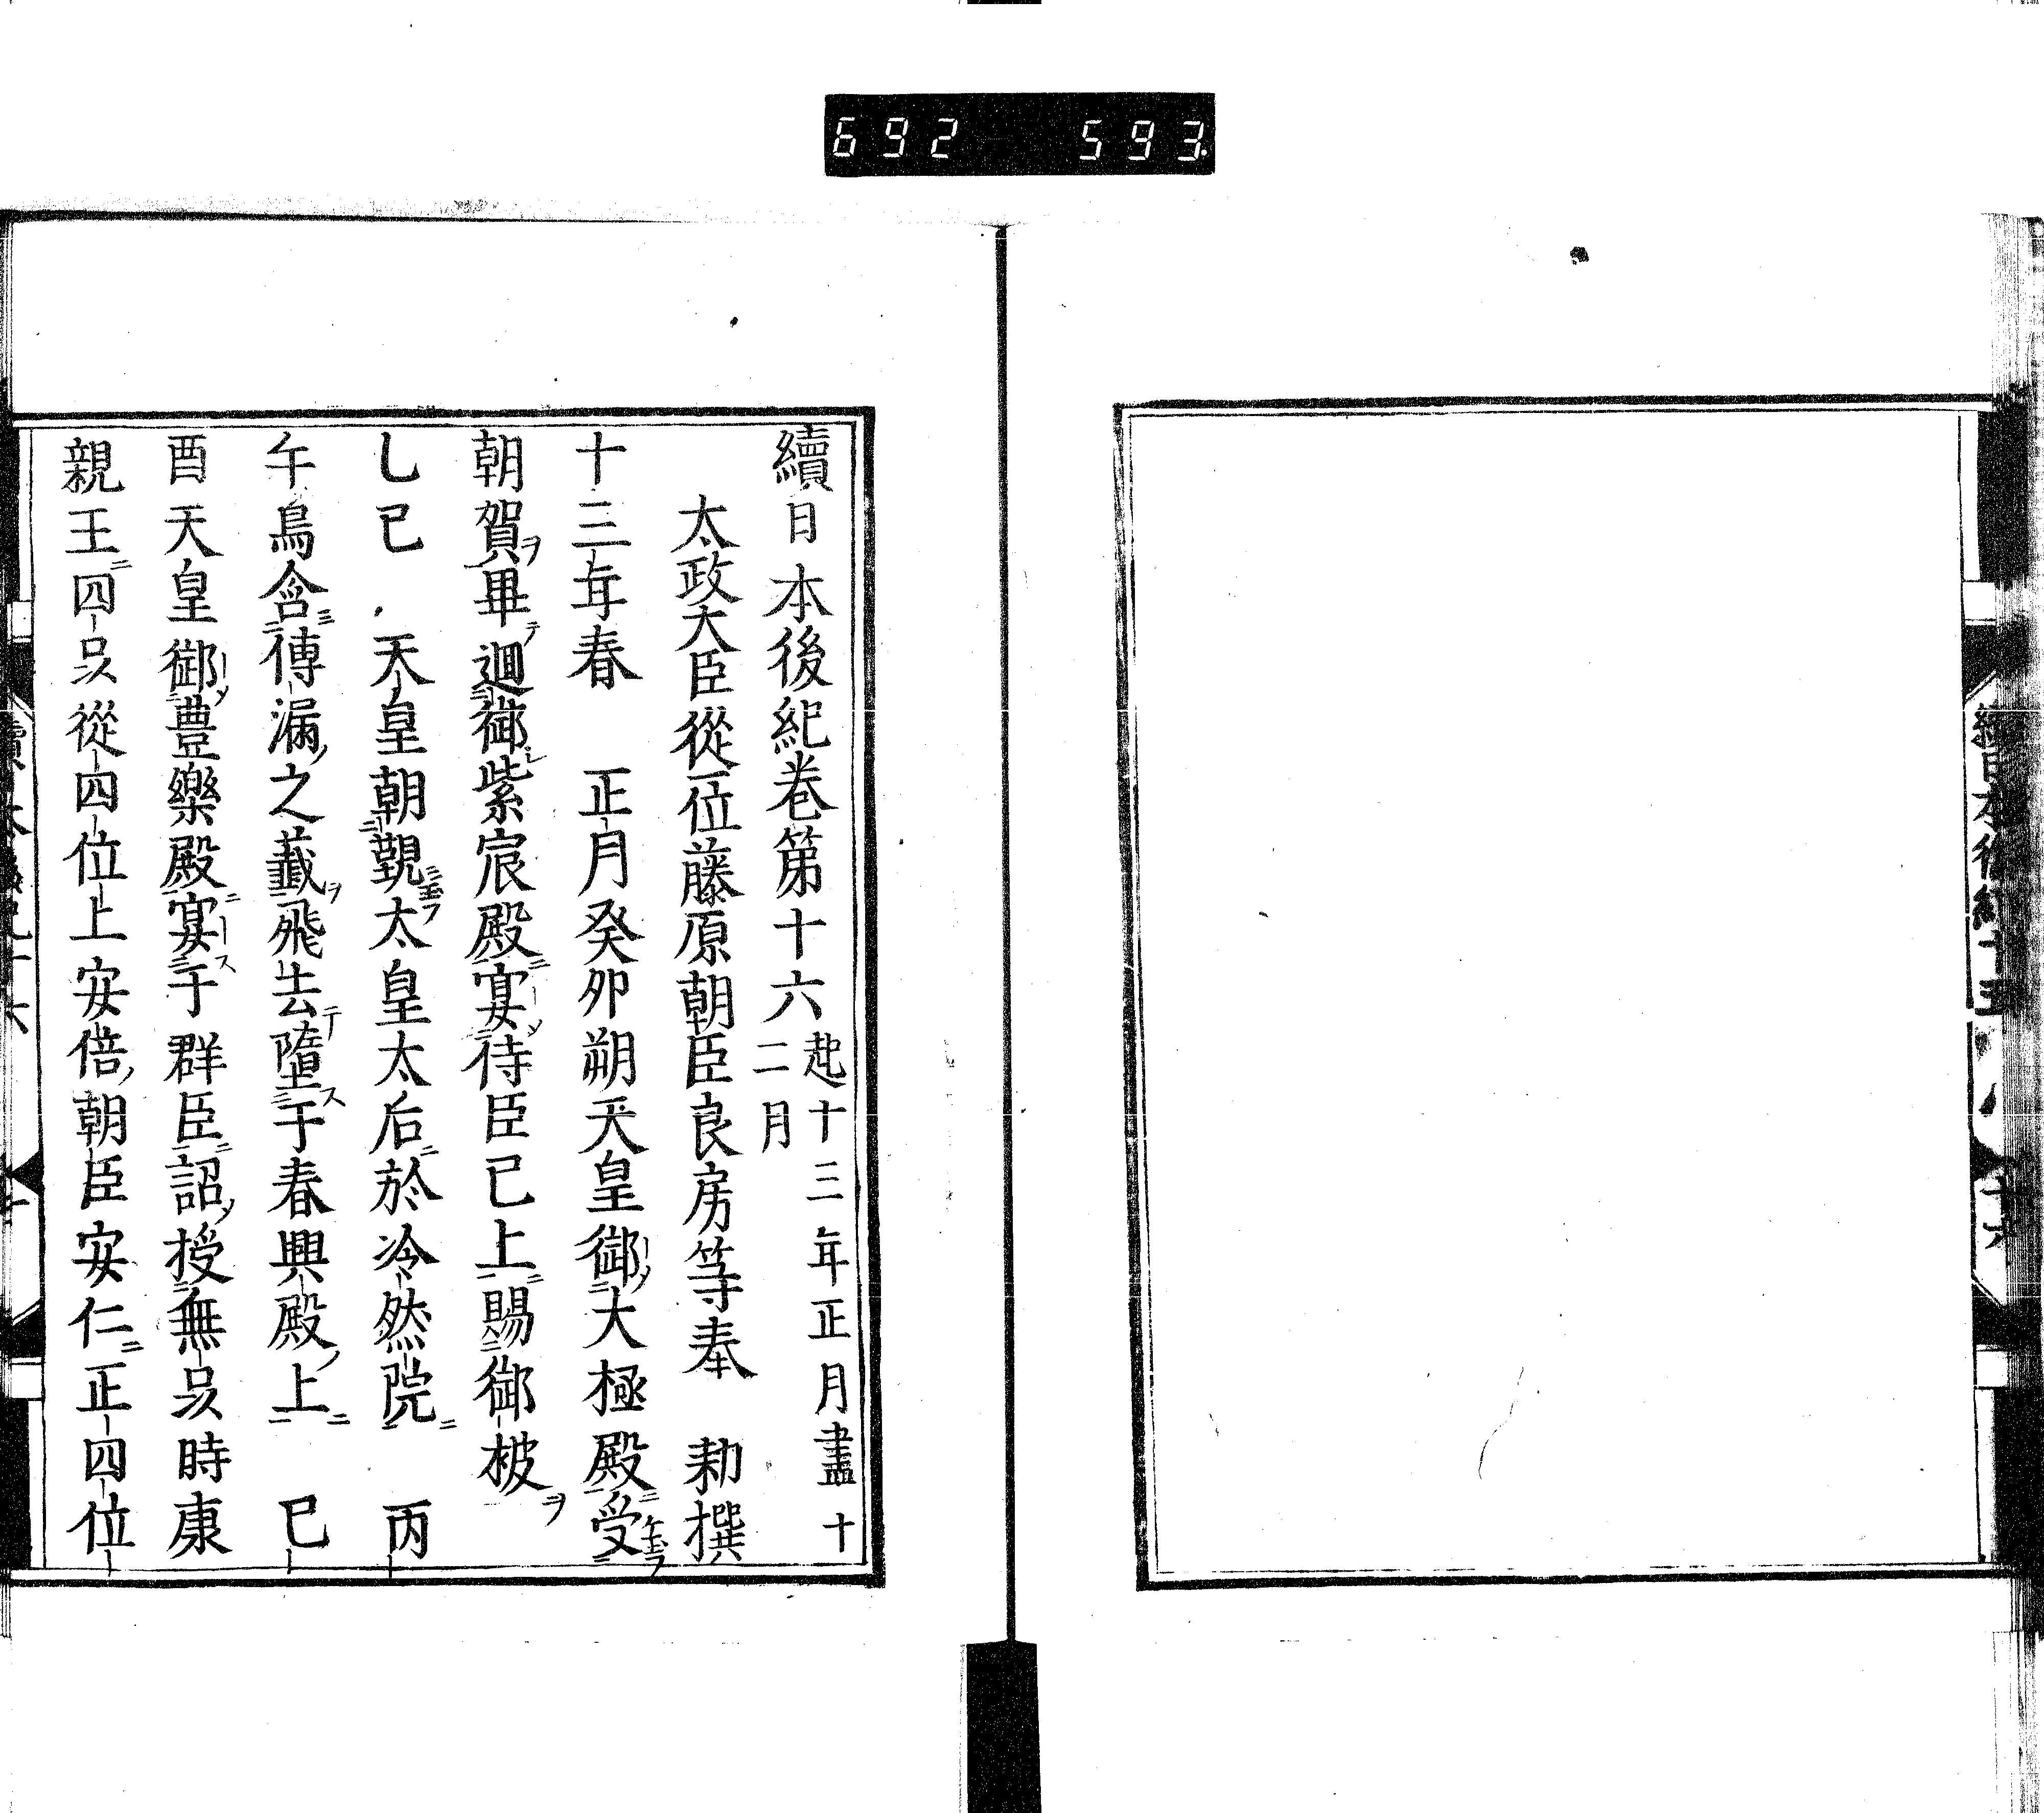 692 593
續日本後紀卷第十六起十三年正月盡十二月
太政大臣從一位藤原朝臣良房等奉 勅撰
十三年春 正月癸卯朔天皇御大極殿受
朝賀畢廻御紫宸殿宴侍臣已上賜御被
乙巳 天皇朝覲太皇太后於冷然院 丙
午烏含傳漏之籤飛去墮于春興殿上 己
酉天皇御豊樂殿宴于群臣詔授無品時康
親王四品從四位上安倍朝臣安仁正四位